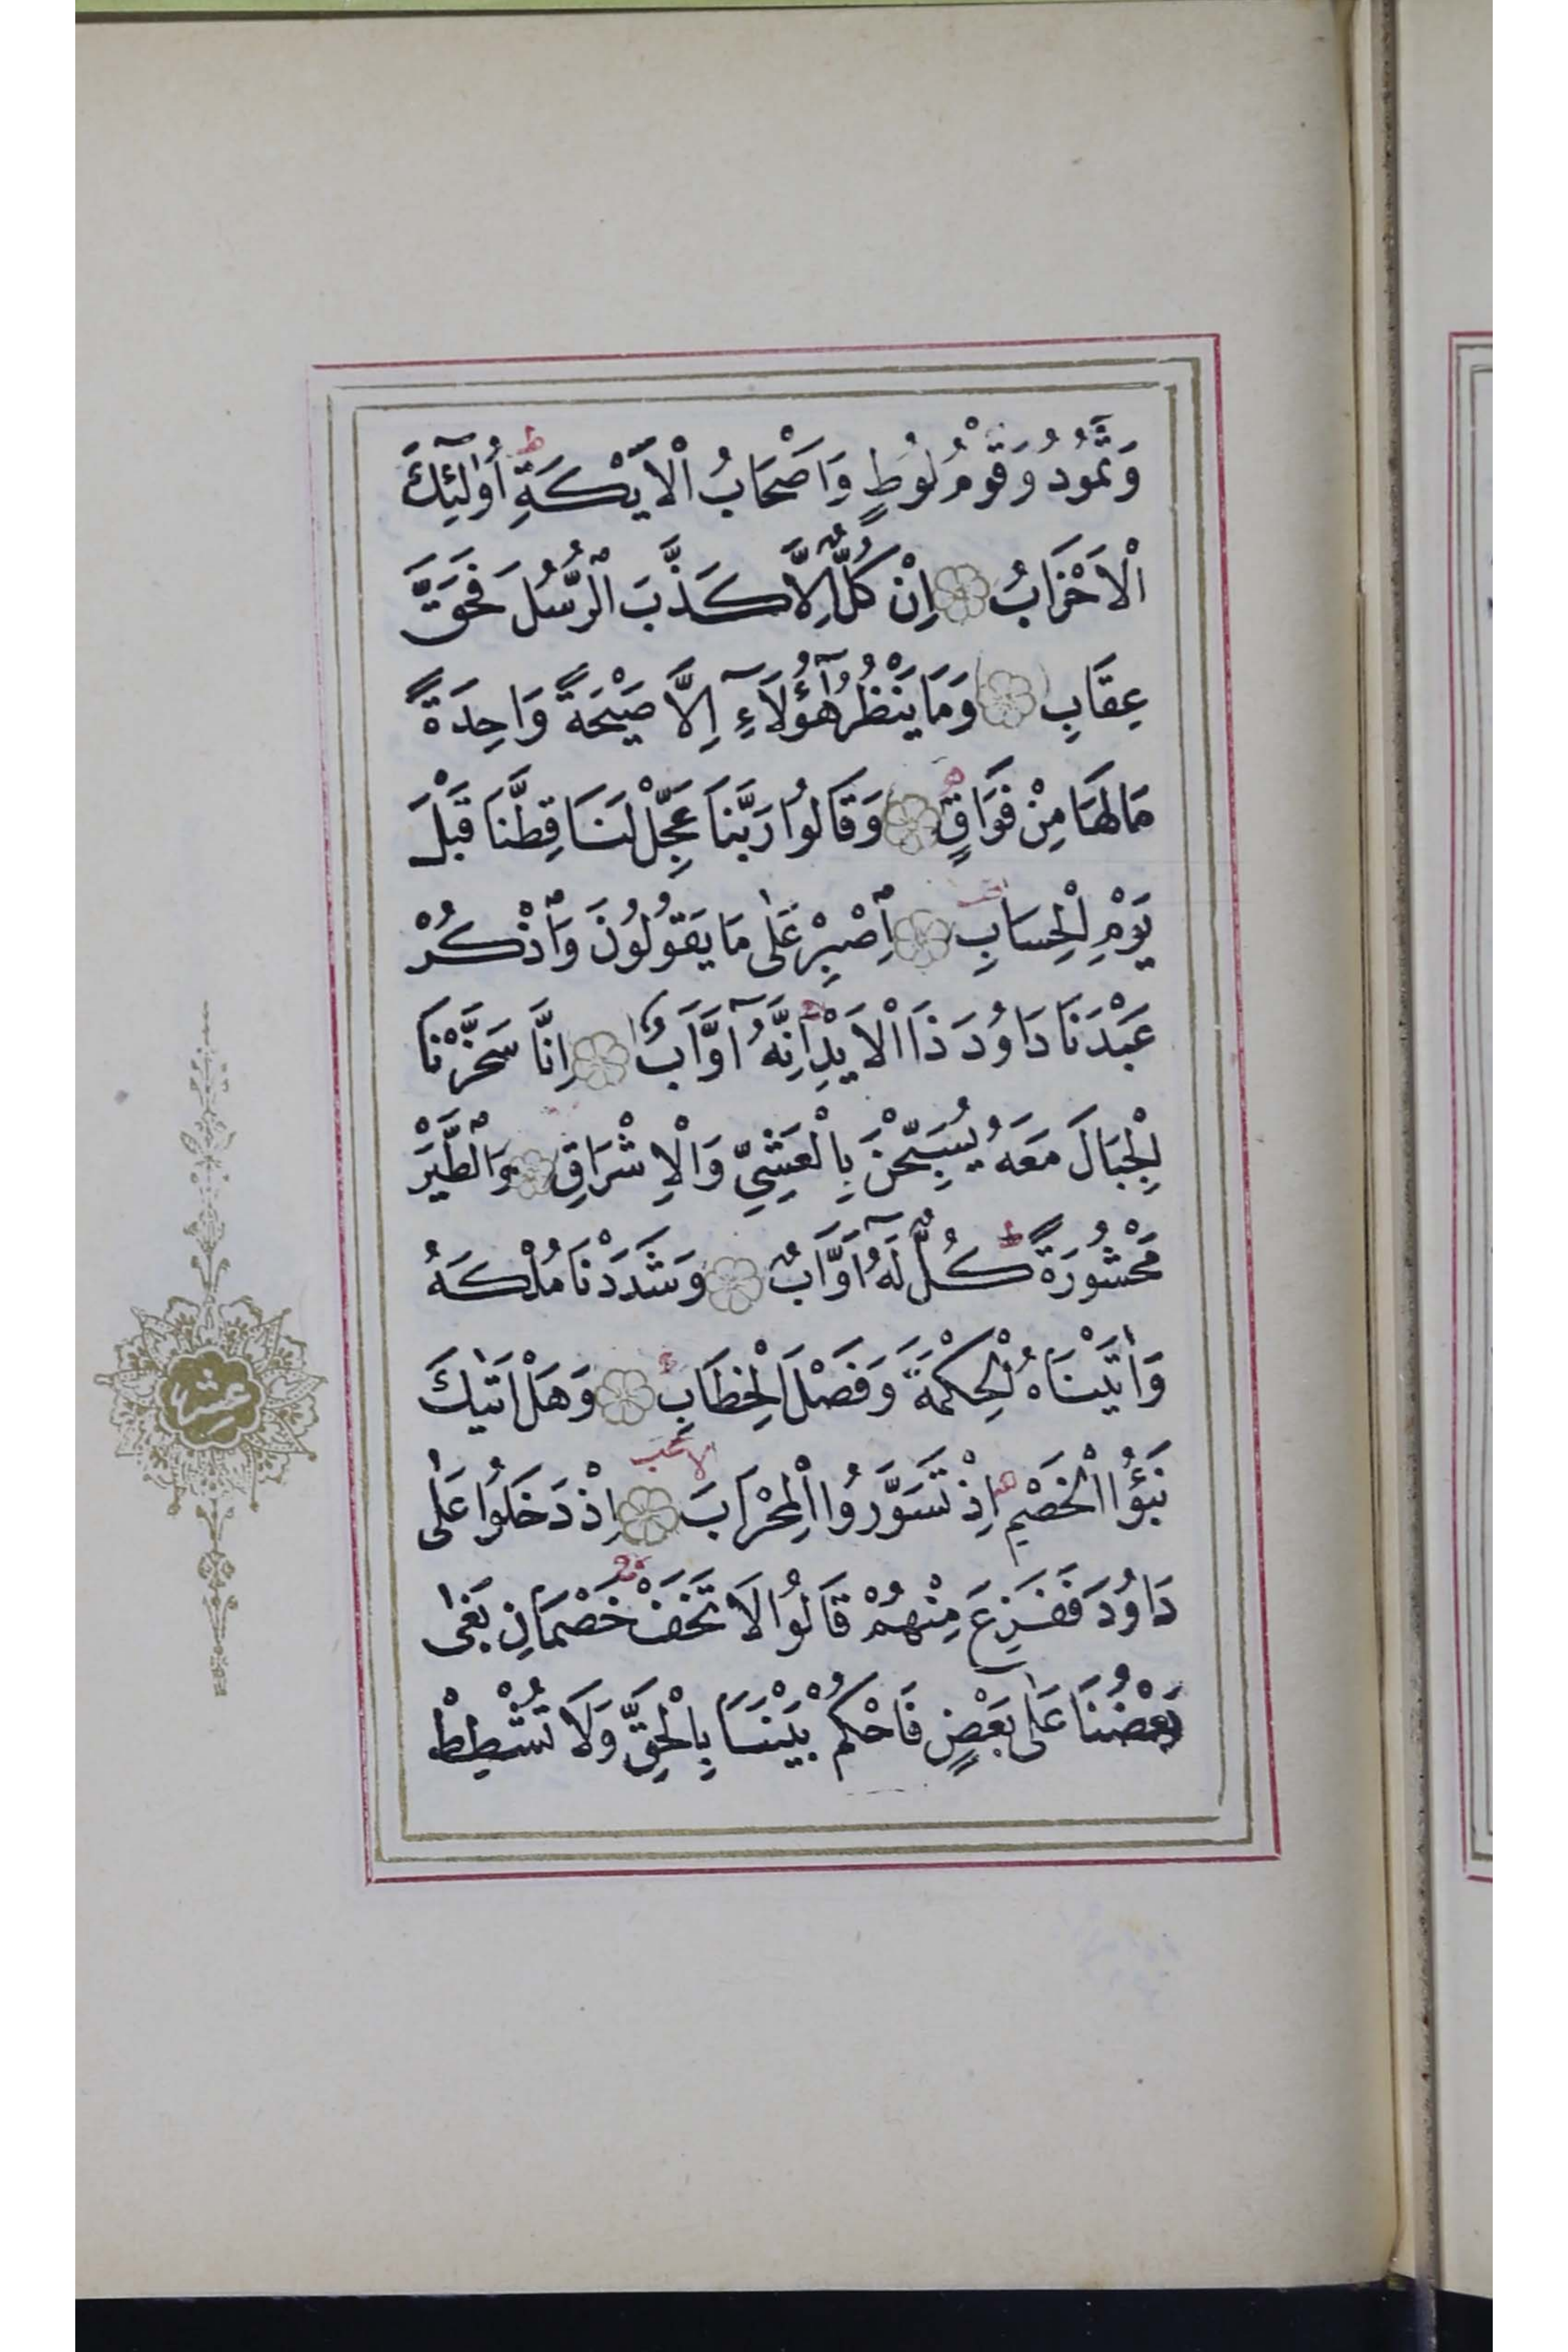 وَثَمُودُ وَقَوْمُ لُوطٍ وَاَصْحَابُ الْاَيْكَةِ ط اُولٰٓئِكَ
الْاَحْزَابُ اِنْ كُلٌّ اِلَّا كَذَّبَ الرُّسُلَ فَحَقَّ
عِقَابِ وَمَا يَنْظُرُ هٰٓؤُلَاۤءِ اِلَّا صَيْحَةً وَاحِدَةً
مَالَهَا مِنْ فَوَاقٍ وَقَالُوا رَبَّنَا عَجِّلْ لَنَا قِطَّنَا قَبْلَ
يَوْمِ الْحِسَابِ اِصْبِرْ عَلٰى مَا يَقُولُونَ وَاذْكُرْ
عَبْدَنَا دَاوُدَ ذَا الْاَيْدِ اِنَّهُ اَوَّابٌ اِنَّا سَخَّرْنَا
الْجِبَالَ مَعَهُ يُسَبِّحْنَ بِالْعَشِيِّ وَالْاِشْرَاقِ وَالطَّيْرَ
مَحْشُورَةً ط كُلٌّ لَهُ اَوَّابٌ وَشَدَدْنَا مُلْكَهُ
وَاٰتَيْنَاهُ الْحِكْمَةَ وَفَصْلَ الْخِطَابِ وَهَلْ اَتٰيكَ
نَبَؤُا الْخَصْمِ اِذْ تَسَوَّرُوا الْمِحْرَابَ اِذْ دَخَلُوا عَلٰى
دَاوُدَ فَفَزِعَ مِنْهُمْ قَالُوا لَا تَخَفْ خَصْمَانِ بَغٰى
بَعْضُنَا عَلٰى بَعْضٍ فَاحْكُمْ بَيْنَنَا بِالْحَقِّ وَلَا تُشْطِطْ
عشر